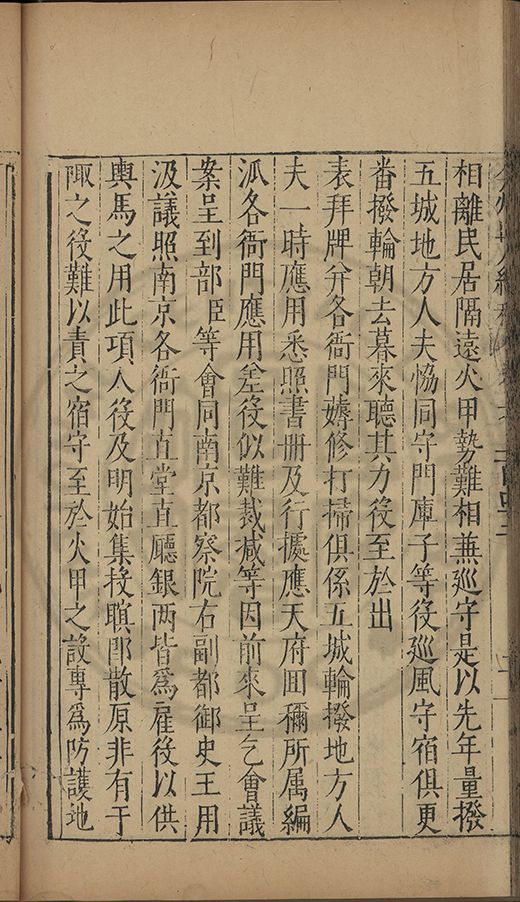 相離民居隔遠火甲勢難相兼巡守是以先年量撥
五城地方人夫恊同守門庫子等役巡風守宿俱更
番撥輪朝去暮來聽其力役至於出
表拜牌并各衙門薅修打掃俱係五城輪撥地方人
夫一時應用悉照書冊及行㨿應天府囬稱所属編
泒各衙門應用差役似難裁减等因前來呈乞會議
案呈到部臣等會同南京都察院右副都御史王用
汲議照南京各衙門直堂直廳銀兩皆爲雇役以供
輿馬之用此項人役及明始集投瞑即散原非有于
陬之役難以責之宿守至於火甲之設專爲防護地